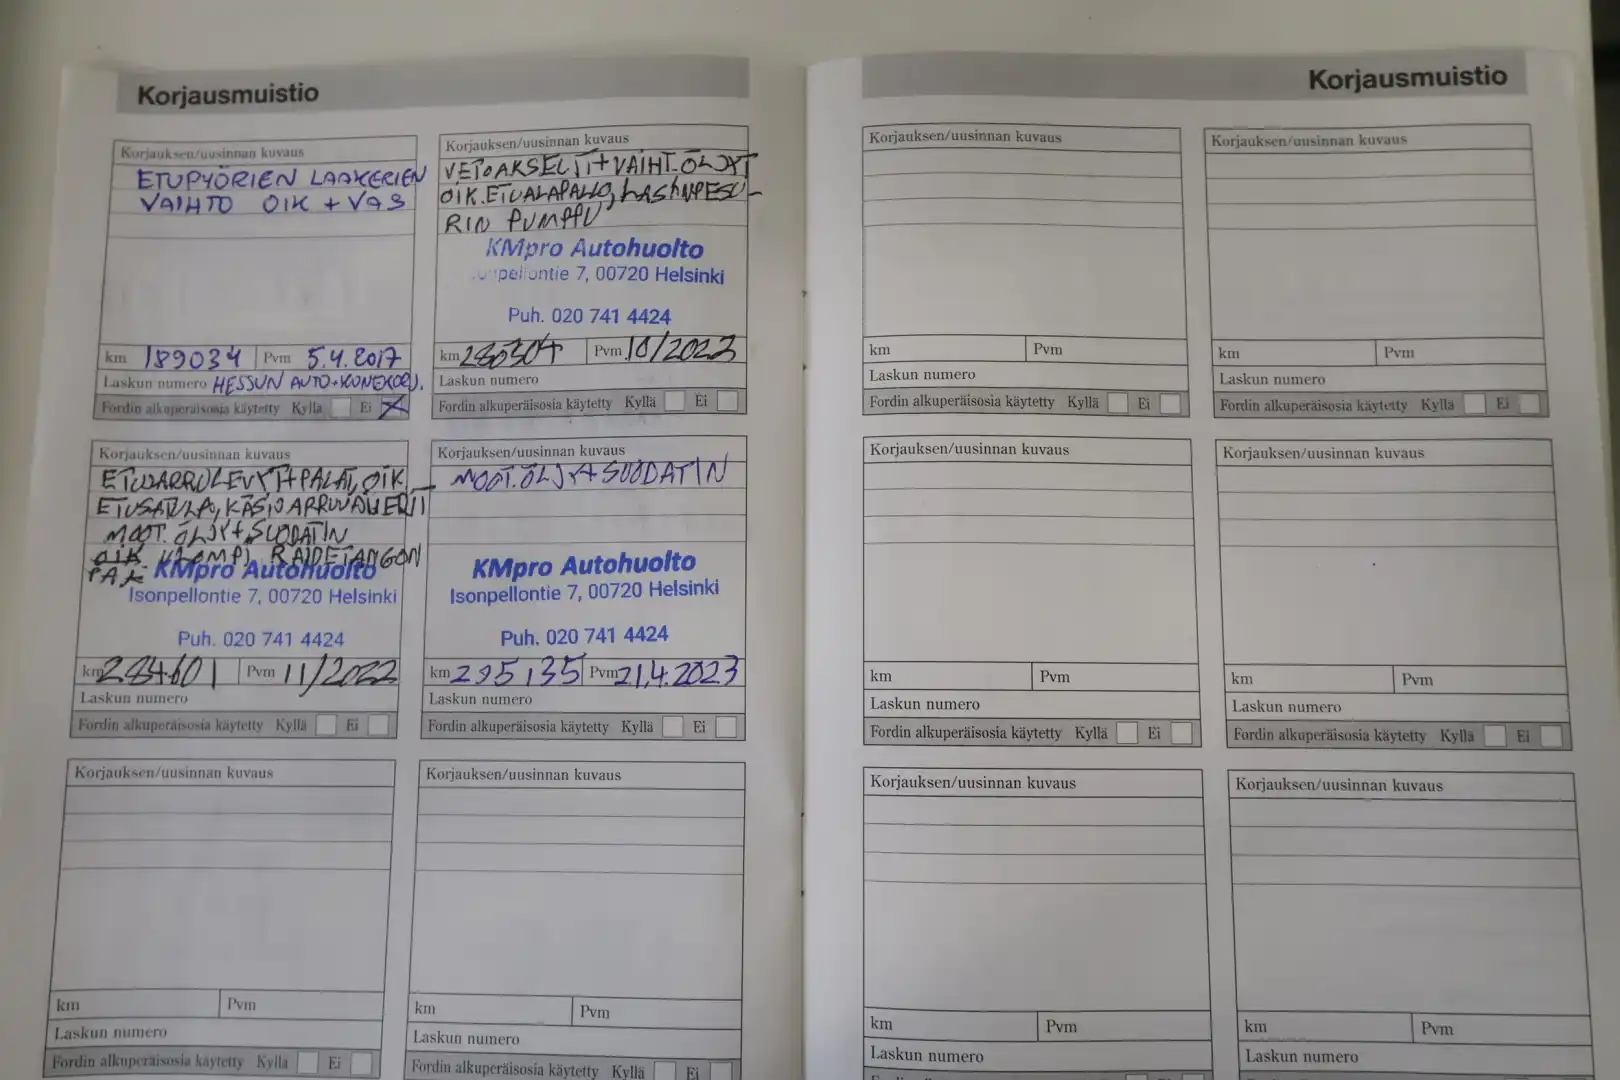 Korjausmuistio
Korjauksen/uusinnan kuvaus
ETUPYÖRIEN LAAKERIEN
VAIHTO OIK + VAS
km 189034 Pvm 5.4.2017
Laskun numero HESSUN AUTO+KONEKORJ.
Fordin alkuperäisosia käytetty Kyllä Ei X
Korjauksen/uusinnan kuvaus
VETOAKSELIT+VAIHT.ÖLJYT
OIK.ETUALAPALLO, LASINPESU-
RIN PUMPPU
KMpro Autohuolto
Isonpellontie 7, 00720 Helsinki
Puh. 020 741 4424
km 280304 Pvm 10/2022
Laskun numero
Fordin alkuperäisosia käytetty Kyllä Ei
Korjauksen/uusinnan kuvaus
ETUJARRULEVYT+PALAT, OIK
ETUSATULA, KÄSIJARRUVAIJERIT
MOOT. ÖLJY+SUODATIN
OIK. YLEMPI RAIDETANGON
PÄÄ
KMpro Autohuolto
Isonpellontie 7, 00720 Helsinki
Puh. 020 741 4424
km 284601 Pvm 11/2022
Laskun numero
Fordin alkuperäisosia käytetty Kyllä Ei
Korjauksen/uusinnan kuvaus
MOOT.ÖLJY+SUODATIN
KMpro Autohuolto
Isonpellontie 7, 00720 Helsinki
Puh. 020 741 4424
km 295135 Pvm 21.4.2023
Laskun numero
Fordin alkuperäisosia käytetty Kyllä Ei
Korjauksen/uusinnan kuvaus
km Pvm
Laskun numero
Fordin alkuperäisosia käytetty Kyllä Ei
Korjauksen/uusinnan kuvaus
km Pvm
Laskun numero
Fordin alkuperäisosia käytetty Kyllä Ei
Korjausmuistio
Korjauksen/uusinnan kuvaus
km Pvm
Laskun numero
Fordin alkuperäisosia käytetty Kyllä Ei
Korjauksen/uusinnan kuvaus
km Pvm
Laskun numero
Fordin alkuperäisosia käytetty Kyllä Ei
Korjauksen/uusinnan kuvaus
km Pvm
Laskun numero
Fordin alkuperäisosia käytetty Kyllä Ei
Korjauksen/uusinnan kuvaus
km Pvm
Laskun numero
Fordin alkuperäisosia käytetty Kyllä Ei
Korjauksen/uusinnan kuvaus
km Pvm
Laskun numero
Korjauksen/uusinnan kuvaus
km Pvm
Laskun numero